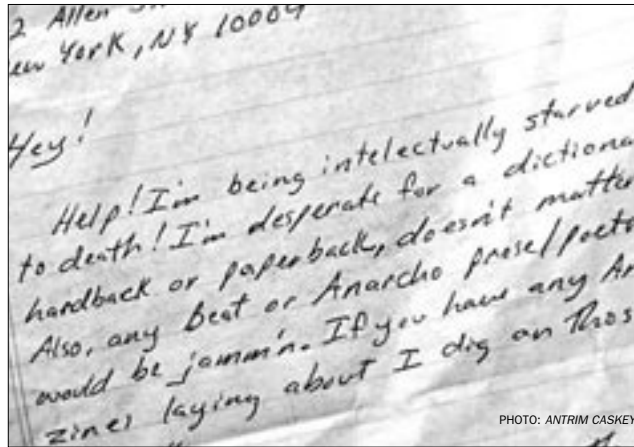 2 Allen
New York, NY 10009
Hey!
Help! I'm being intelectually starved
to death! I'm desperate for a dictiona
hardback or paperback, doesn't matter
Also, any Beat or Anarcho prose/poet
would be jammin. If you have any An
zines laying about I dig on Thos
PHOTO: ANTRIM CASKEY